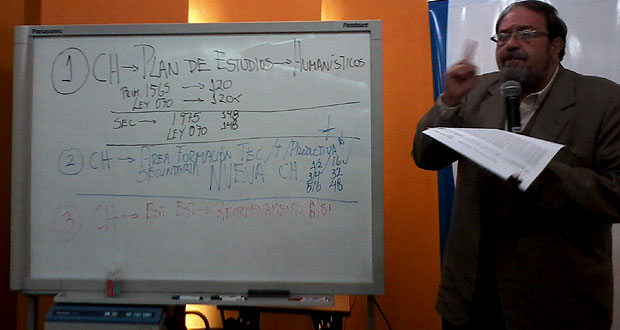 Panasonic
Panaboard
1 CH → PLAN DE ESTUDIOS → HUMANÍSTICOS
PRIM. 1565 → 120
LEY 070 → 120
SEC → 1975 148
LEY 070 148
2 CH → AREA FORMACIÓN TEC/T/PRODUCTIVA
SECUNDARIA NUEVA CH 1/2 16
3/4 32
5/6 48
3 CH → EST - EST → REORDENAMIENTO